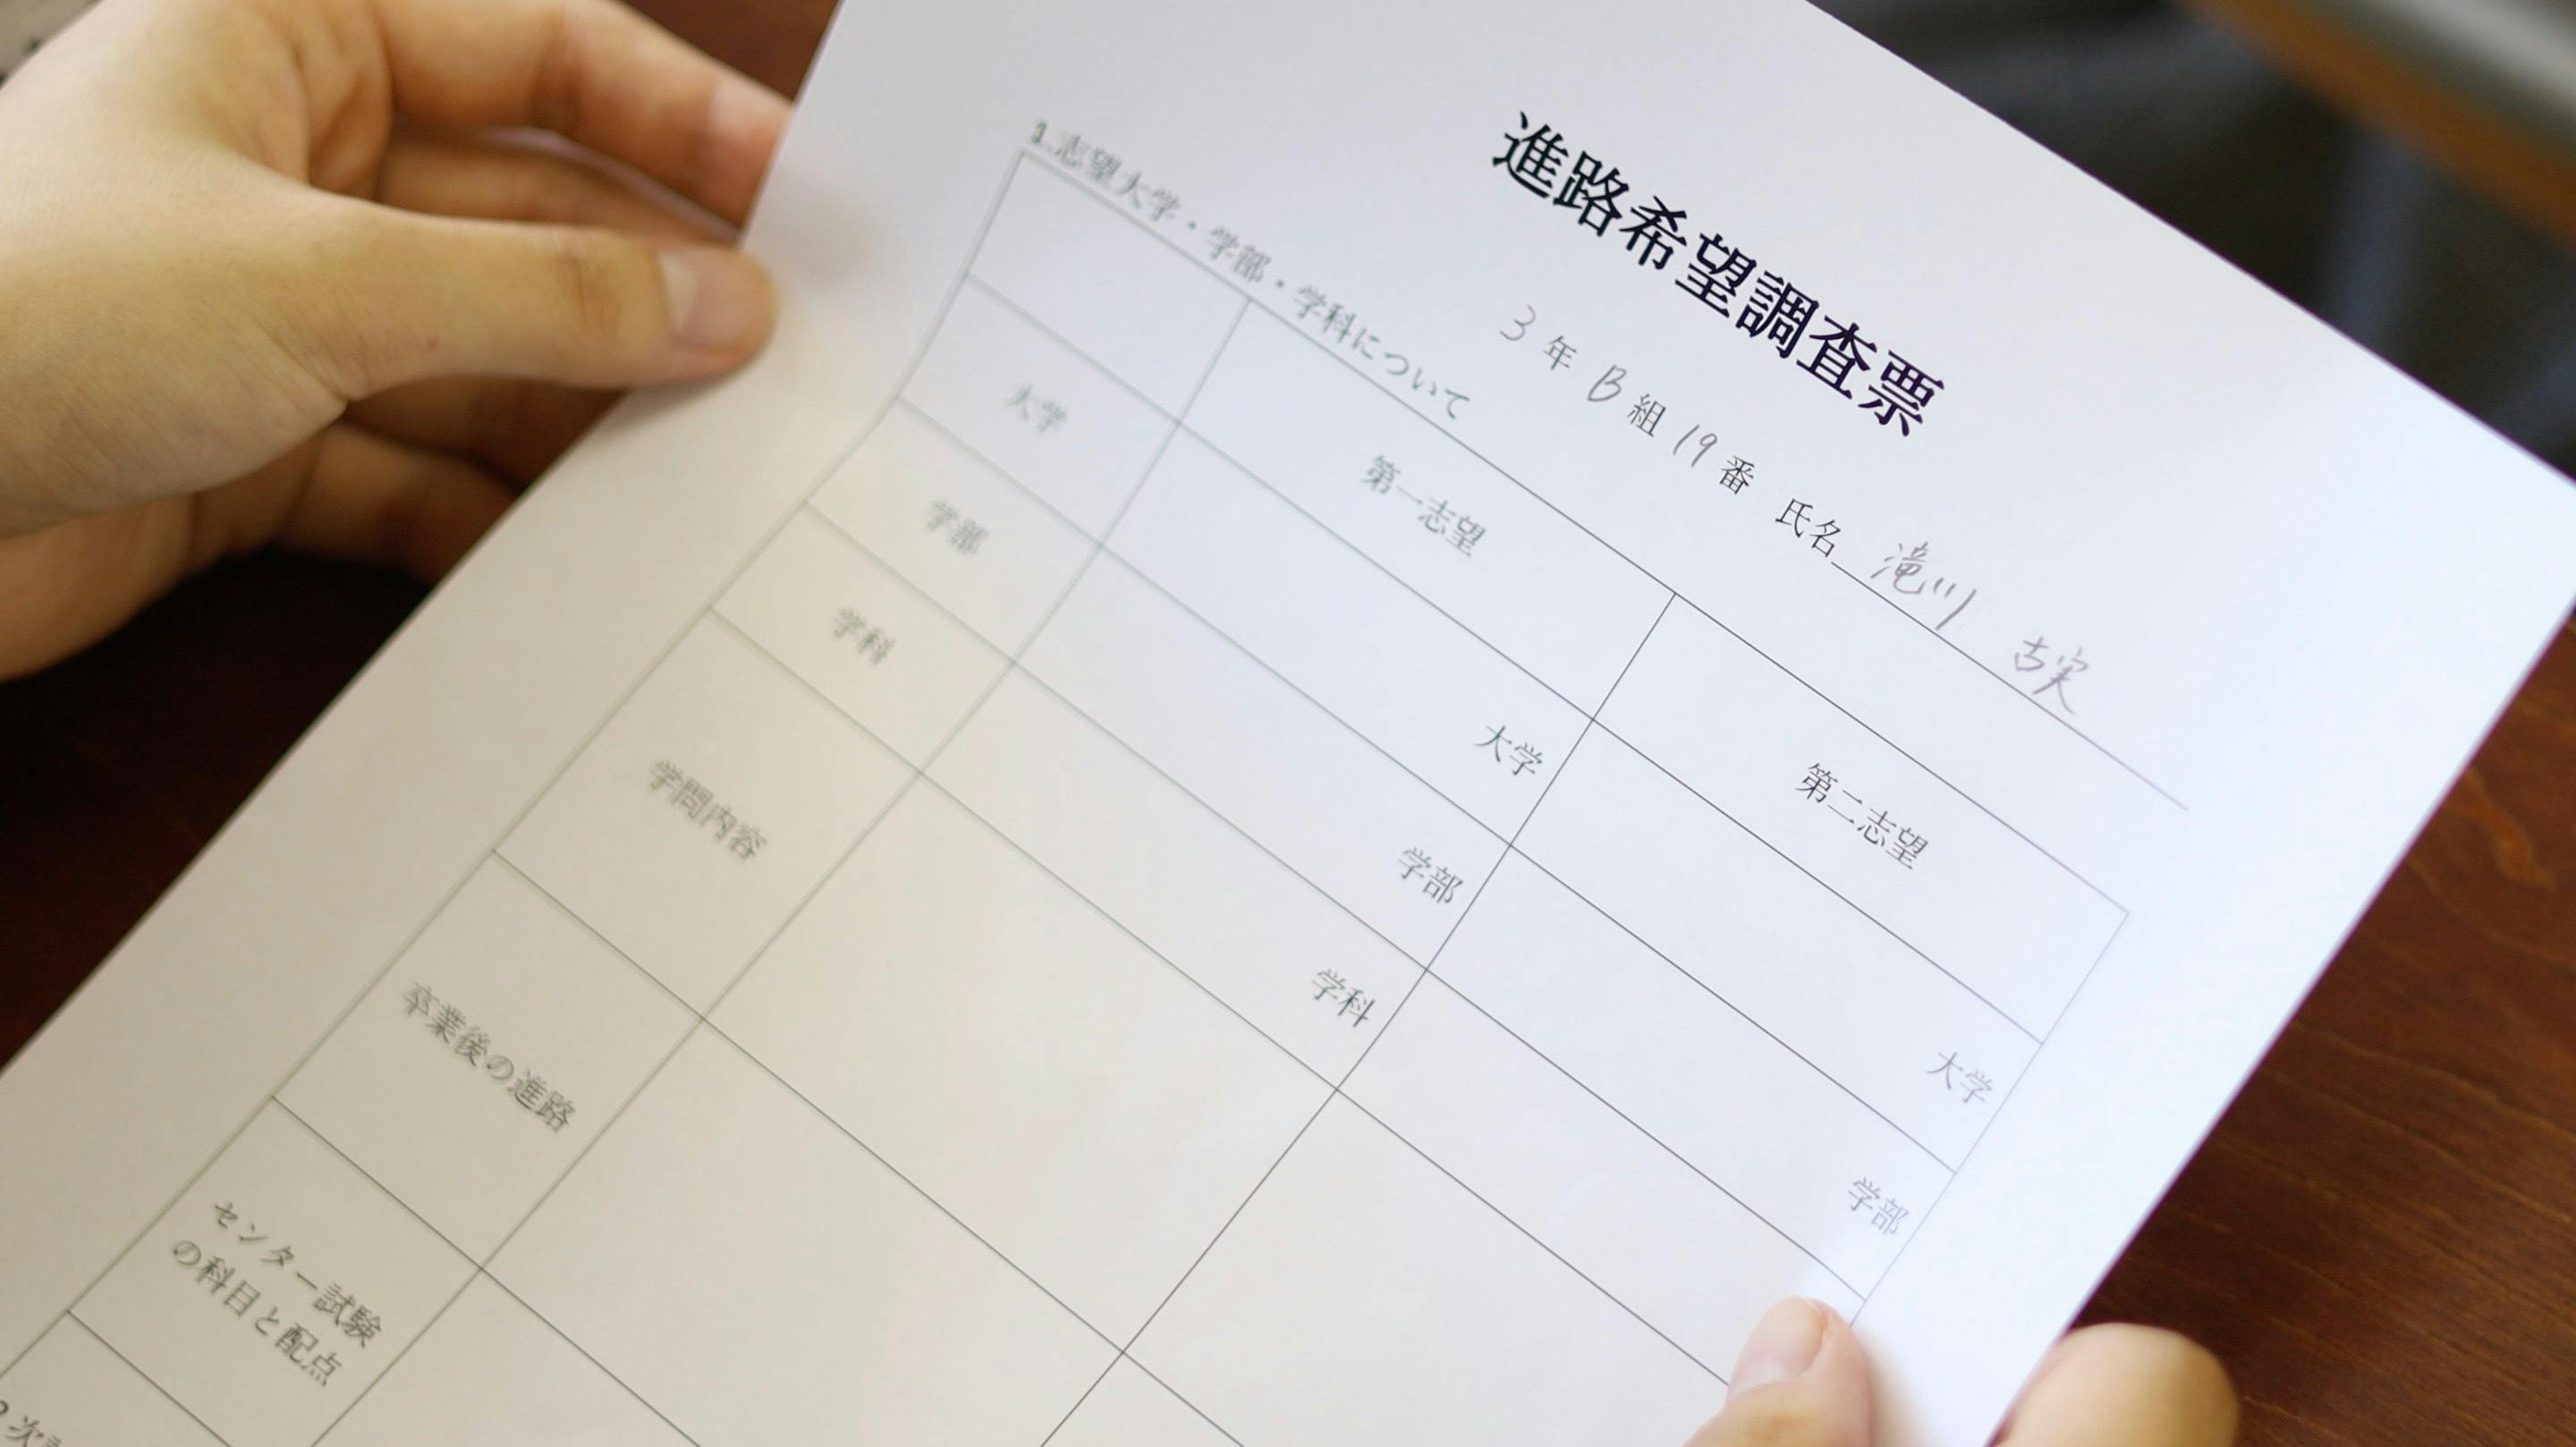 進路希望調査票
3年B組19番 氏名 滝川 古実
1.志望大学・学部・学科について
第一志望 第二志望
大学 大学 大学
学部 学部 学部
学科 学科
学問内容
卒業後の進路
センター試験
の科目と配点
2次